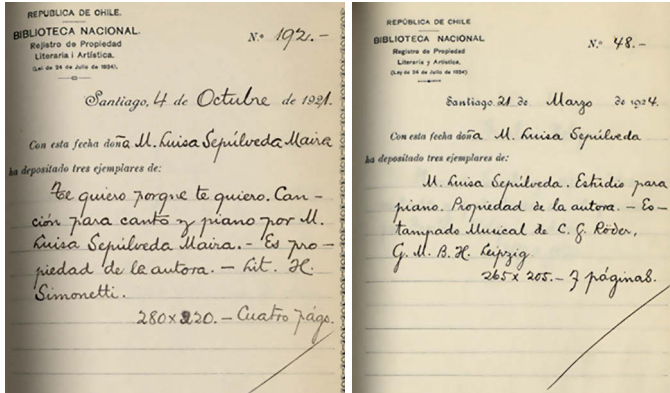 REPÚBLICA DE CHILE.
BIBLIOTECA NACIONAL.
Rejistro de Propiedad
Literaria i Artística.
(Lei de 24 de Julio de 1834).
N.º 192.-
Santiago, 4 de Octubre de 1921.
Con esta fecha doña M. Luisa Sepúlveda Maira
ha depositado tres ejemplares de:
Te quiero porque te quiero. Can-
ción para canto y piano por M.
Luisa Sepúlveda Maira. - Es pro-
piedad de la autora. - Lit. H.
Simonetti.
280 x 220. - Cuatro págs.
REPÚBLICA DE CHILE
BIBLIOTECA NACIONAL
Registro de Propiedad
Literaria y Artística.
(Ley de 24 de Julio de 1834)
N.º 48.-
Santiago, 21 de Marzo de 1924.
Con esta fecha doña M. Luisa Sepúlveda
ha depositado tres ejemplares de:
M. Luisa Sepúlveda. Estudio para
piano. Propiedad de la autora. - Es-
tampado Musical de C. G. Röder,
G. M. B. H. Leipzig.
265 x 205. - 7 páginas.